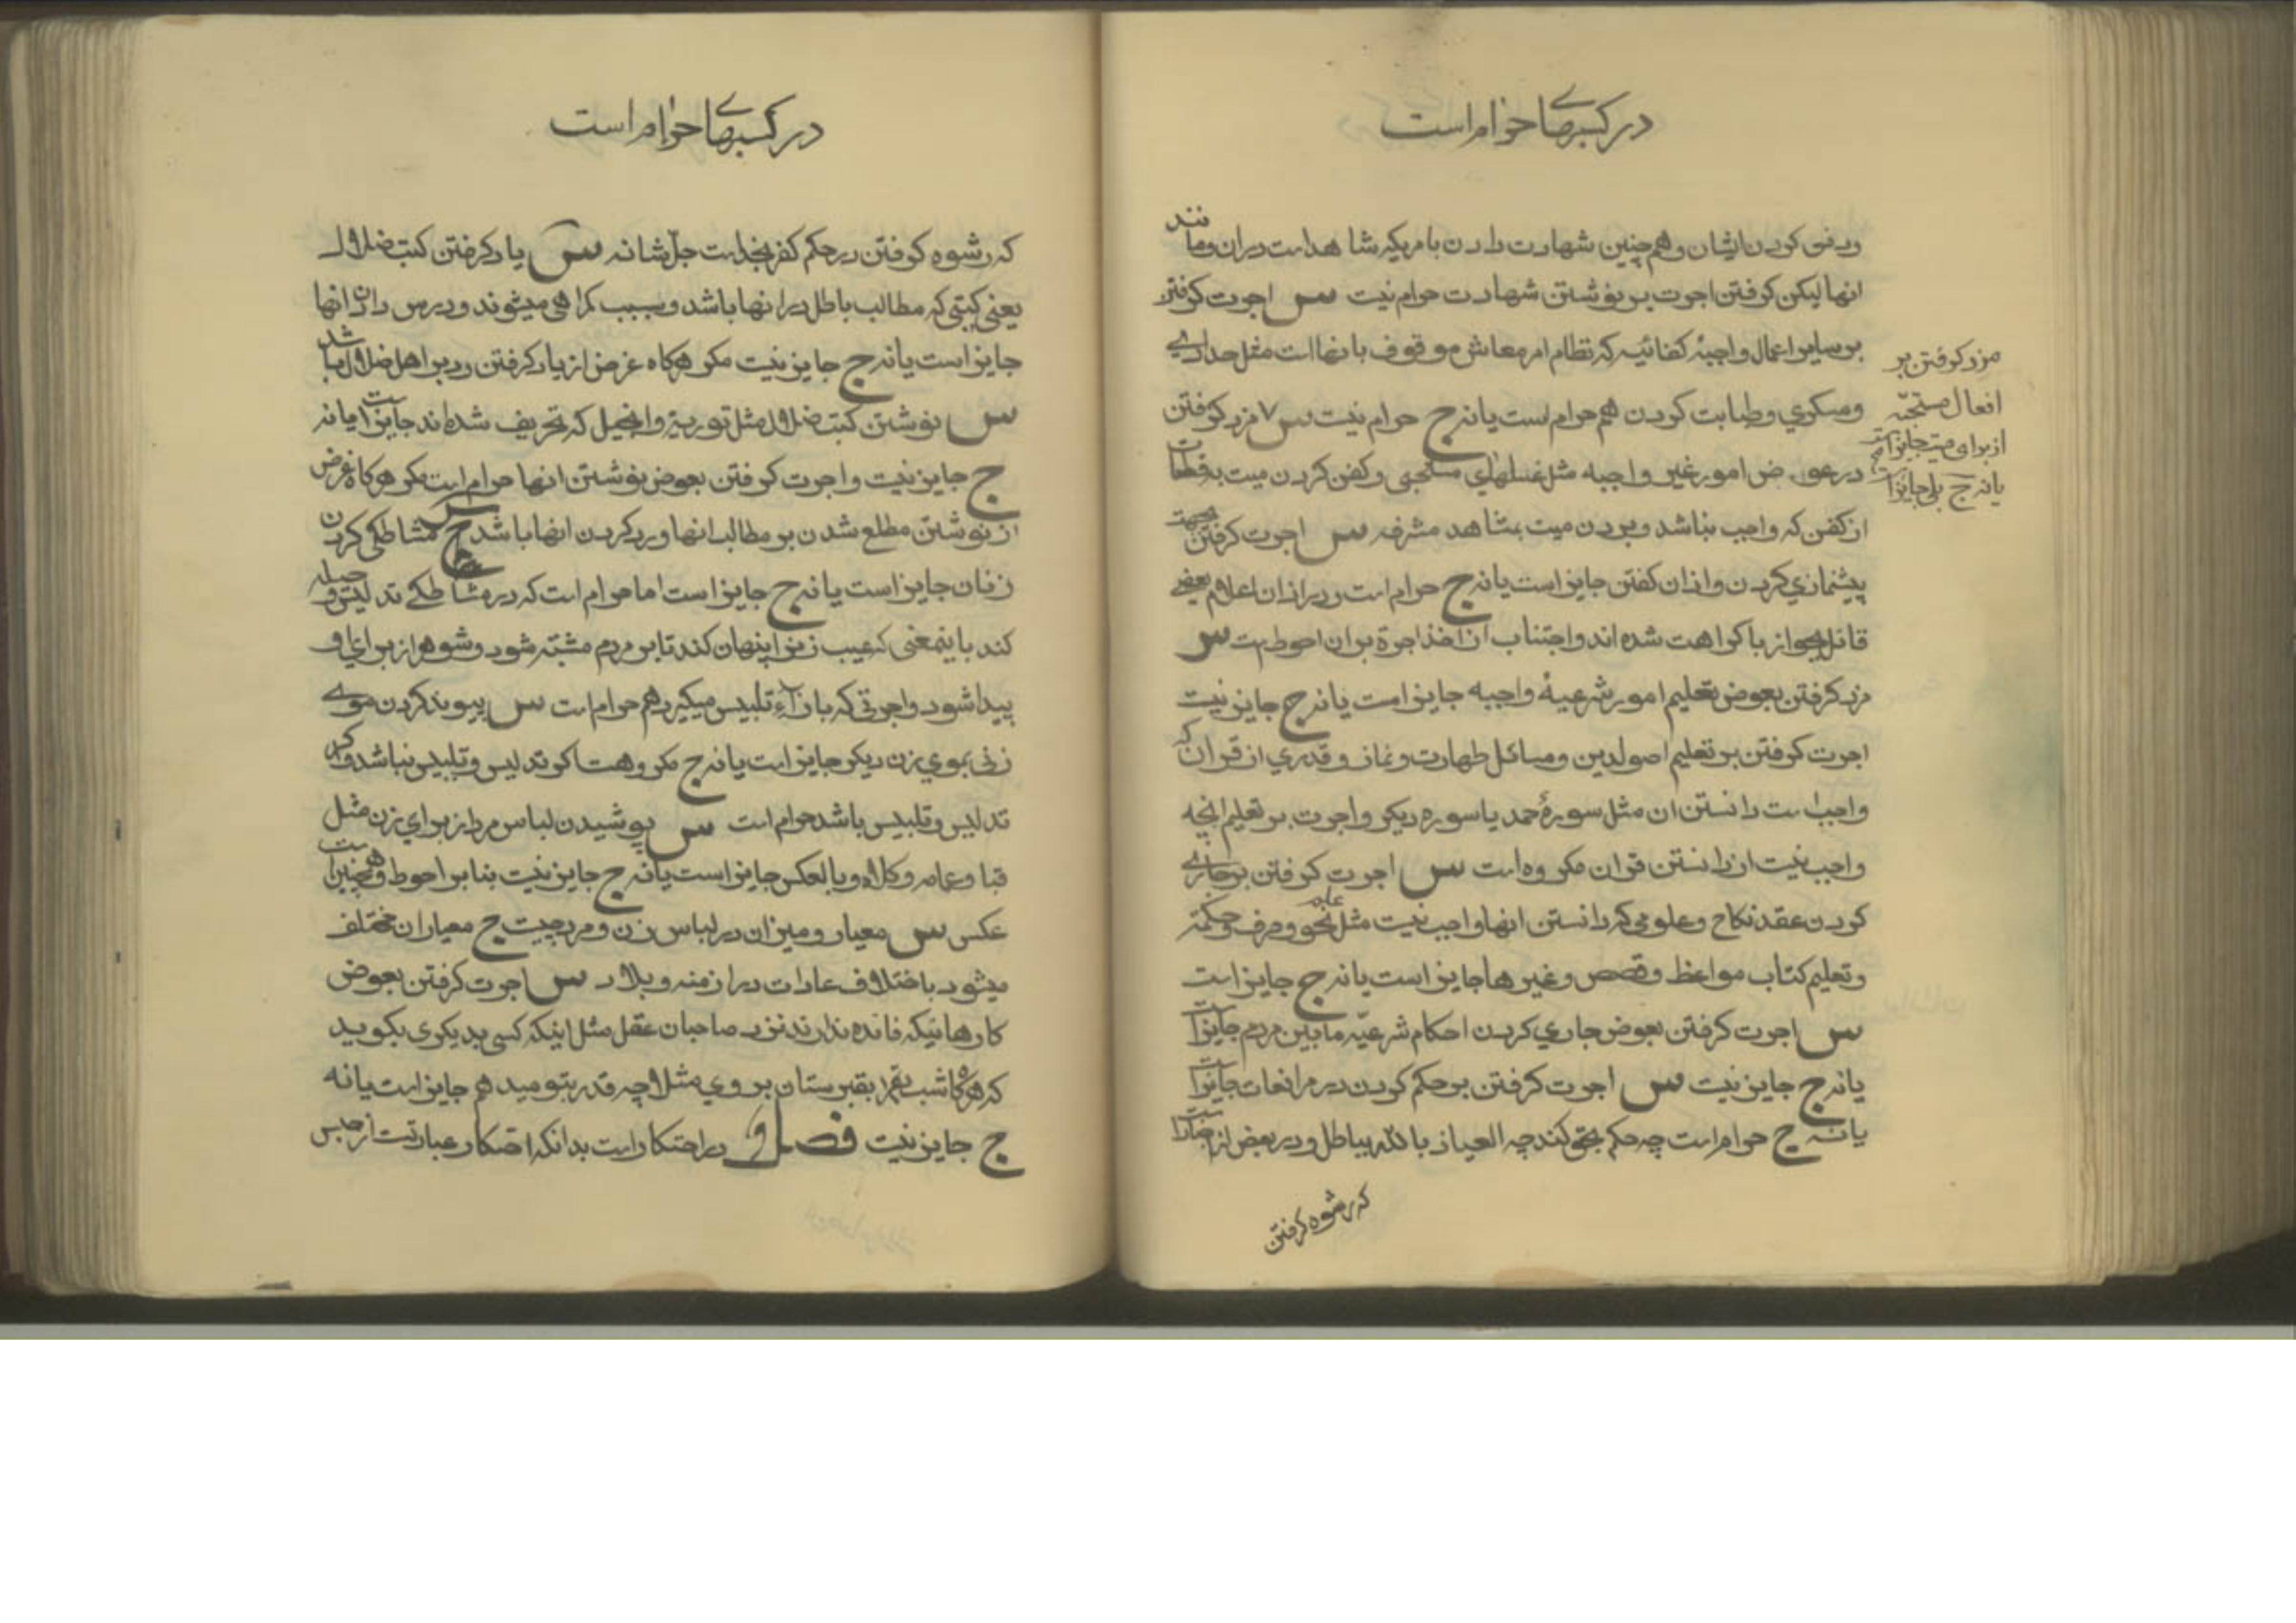 در کسبهای حرام است
ودفن کردن ایشان وهمچنین شهادت دادن بامریکه شاهد است دران ومانند
انها لیکن گرفتن اجرت بر نوشتن شهادت حرام نیست س اجرت گرفتن
بر سایر اعمال واجبهٔ کفائیه که نظام امر معاش موقوف بانها است مثل حدادی
ومسکری وطبابت کردن هم حرام است یا نه ج حرام نیست س ۷ مزد گرفتن
در عوض امور غیر واجبه مثل غسلهای مستحبی وکفن کردن میت بقطعات
از کفن که واجب نباشد وبردن میت بمشاهد مشرفه س اجرت گرفتن بجهت
پیشنمازی کردن واذان گفتن جایز است یا نه ج حرام است ودر اذان اعلام بعضی
قائل بجواز با کراهت شده اند واجتناب از اخذ اجرة بران احوط است س
مزد گرفتن بعوض تعلیم امور شرعیهٔ واجبه جایز است یا نه ج جایز نیست
اجرت گرفتن بر تعلیم اصول دین ومسائل طهارت ونماز وقدری از قران که
واجب است دانستن ان مثل سورهٔ حمد یا سوره دیگر واجرت بر تعلیم انچه
واجب نیست از دانستن قران مکروه است س اجرت گرفتن بر جاری
کردن عقد نکاح وعلومی که دانستن انها واجب نیست مثل نحو وصرف وحکمة
وتعلیم کتاب مواعظ وقصص وغیرها جایز است یا نه ج جایز است
س اجرت گرفتن بعوض جاری کردن احکام شرعیّه مابین مردم جایز است
یا نه ج جایز نیست س اجرت گرفتن بر حکم کردن در مرافعات جایز است
یا نه ج حرام است چه حکم بحق کند چه العیاذ بالله بباطل ودر بعض از اخبار است
که رشوه گرفتن
مزد گرفتن بر
افعال مستحبّه
از برای میت جایز است
یا نه ج بلی جایز است
در کسبهای حرام است
که رشوه گرفتن در حکم کفر بخداست جلّ شانه س یاد گرفتن کتب ضلال
یعنی کتبی که مطالب باطل در انها باشد وسبب گمراهی میشوند ودرس دادن انها
جایز است یا نه ج جایز نیست مگر هرگاه غرض از یاد گرفتن رد بر اهل ضلال باشد
س نوشتن کتب ضلال مثل توریة وانجیل که تحریف شده اند جایز است یا نه
ج جایز نیست واجرت گرفتن بعوض نوشتن انها حرام است مگر هرگاه غرض
از نوشتن مطلع شدن بر مطالب انها ورد کردن انها باشد س مشاطگی کردن
زنان جایز است یا نه ج جایز است اما حرام است که در مشاطگی تدلیس وحیله
کند باینمعنی که عیب زن را پنهان کند تا بر مردم مشتبه شود وشوهر از برای او
پیدا شود واجرتی که بازاء تلبیس میگیرد هم حرام است س پیوند کردن موی
زنی بموی زن دیگر جایز است یا نه ج مکروهست اگر تدلیس وتلبیس نباشد واگر
تدلیس وتلبیس باشد حرام است س پوشیدن لباس مرد از برای زن مثل
قبا وعمامه وکلاه وبالعکس جایز است یا نه ج جایز نیست بنا بر احوط وهمچنین است
عکس س معیار ومیزان در لباس زن ومرد چیست ج معیار ان مختلف
میشود باختلاف عادات در ازمنه وبلاد س اجرت گرفتن بعوض
کارهائیکه فائده ندارند نزد صاحبان عقل مثل اینکه کسی بدیگری بگوید
که هرگاه شب بقبرستان بروی مثلا چه قدر بتو میدهم جایز است یا نه
ج جایز نیست فصل در احتکار است بدانکه احتکار عبارتست از حبس